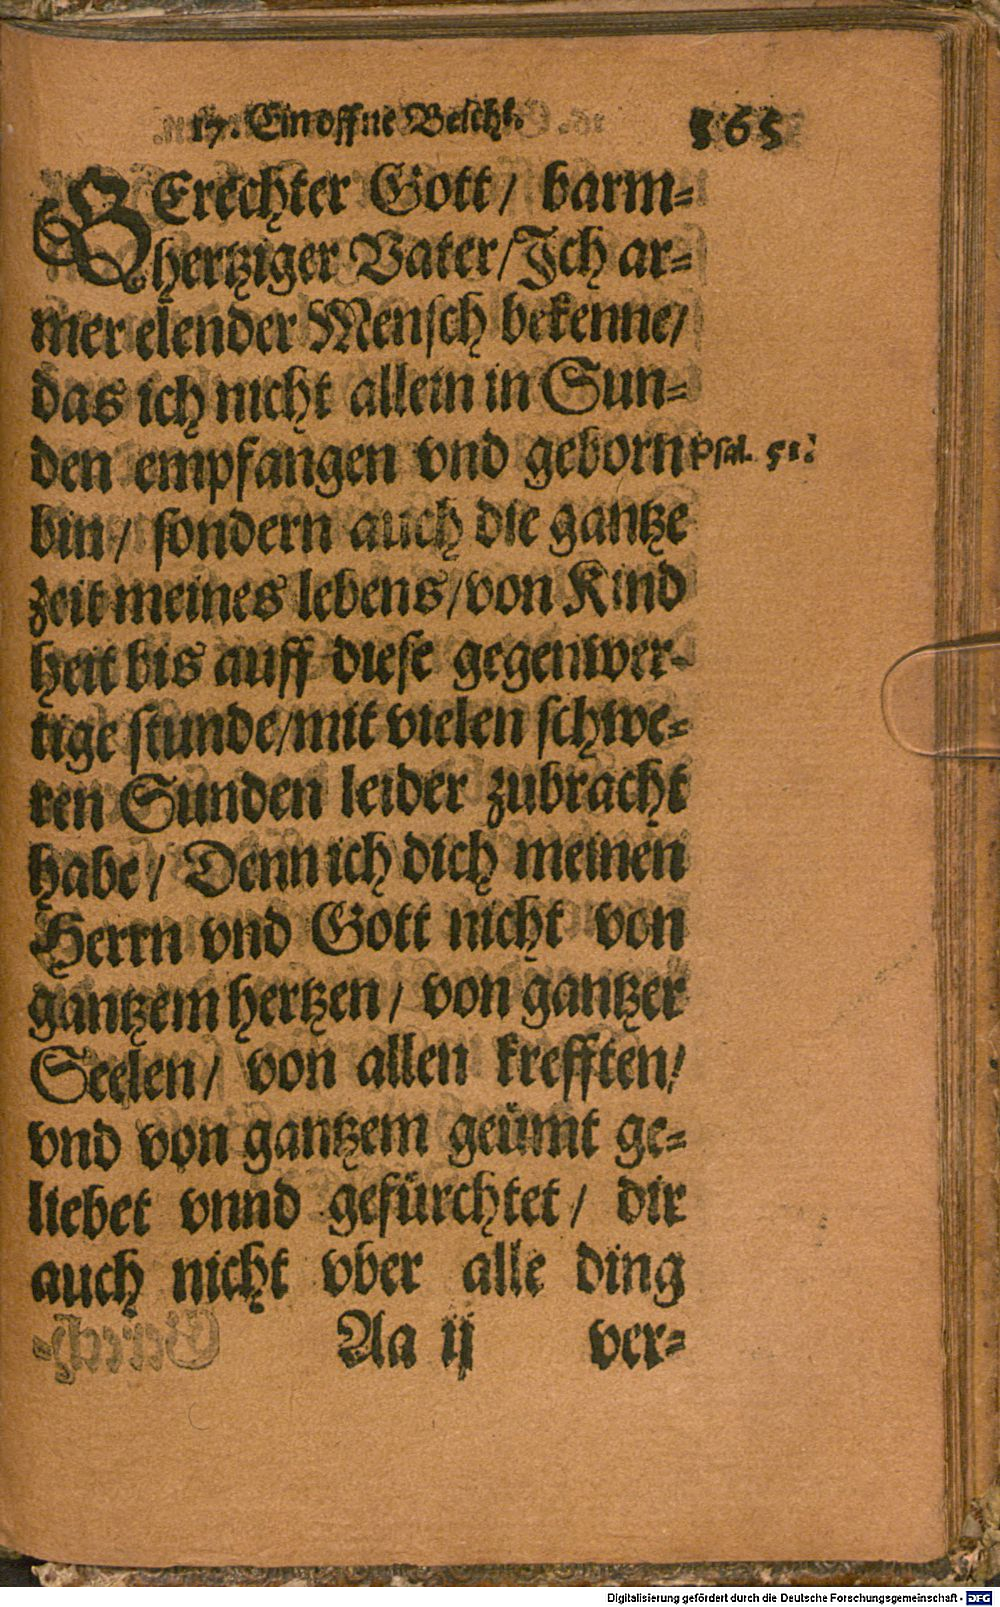 17. Ein offne Beicht. 565
GErechter Gott / barm=
hertziger Vater / Jch ar=
mer elender Mensch bekenne /
das ich nicht allein in Sun=
den empfangen vnd geborn Psal. 51.
bin / sondern auch die gantze
zeit meines lebens / von Kind
heit bis auff diese gegenwer=
tige stunde / mit vielen schwe=
ren Sunden leider zubracht
habe / Denn ich dich meinen
Herrn vnd Gott nicht von
gantzem hertzen / von gantzer
Seelen / von allen krefften /
vnd von gantzem gemüt ge=
liebet vnnd gefürchtet / dir
auch nicht vber alle ding
Aa ij ver=
Digitalisierung gefördert durch die Deutsche Forschungsgemeinschaft - DFG